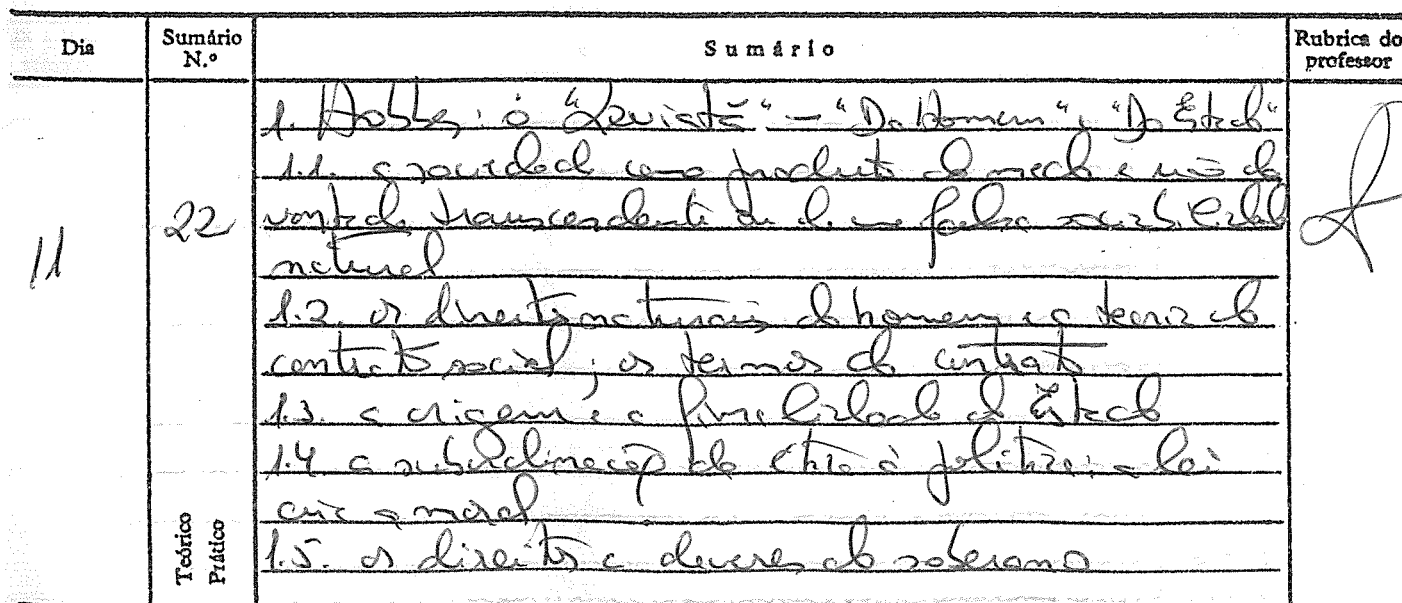 Dia
Sumário N.º
Sumário
Rubrica do professor
11
22
Teórico
Prático
1. Hobbes: o "Leviatã" - "Do Homem", "Do Estado"
1.1. a sociedade como produto do medo e não da
vontade transcendente ou de uma falsa sociabilidade
natural
1.2. os direitos naturais do homem e a teoria do
contrato social; os termos do contrato
1.3. a origem e a finalidade do Estado
1.4 a subordinação da ética à política; a lei
cria a moral
1.5. os direitos e deveres do soberano